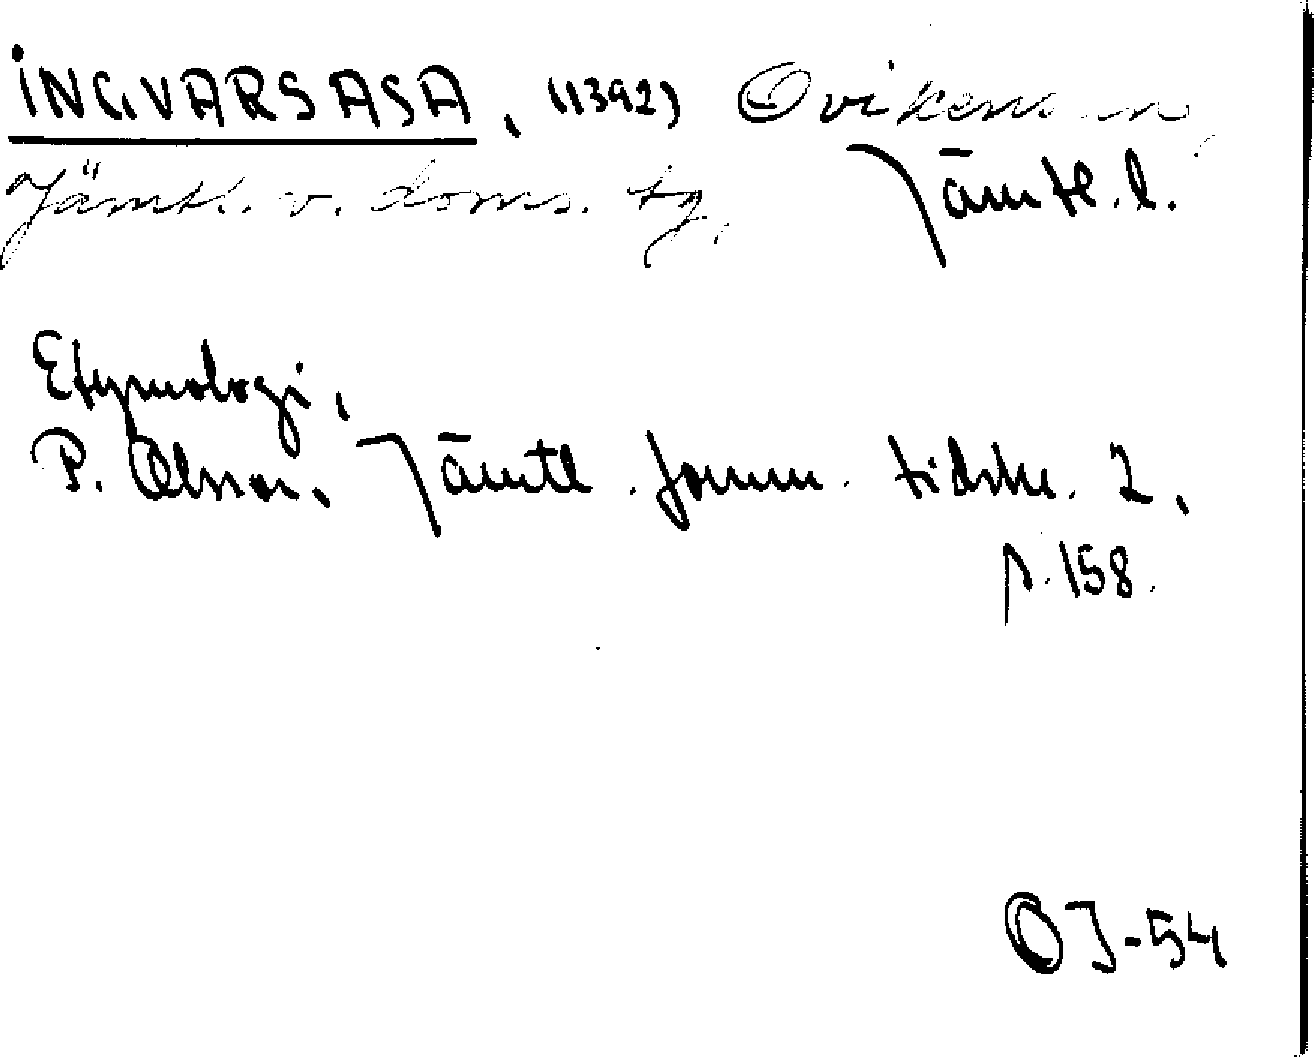 INGVARSASA, (1392) Oviken
Jämtl. v. doms. tg, Jämtl. l.
Etymologi,
P. Olsson, Jämtl. fornm. tidskr. 2,
p. 158.
OJ-54